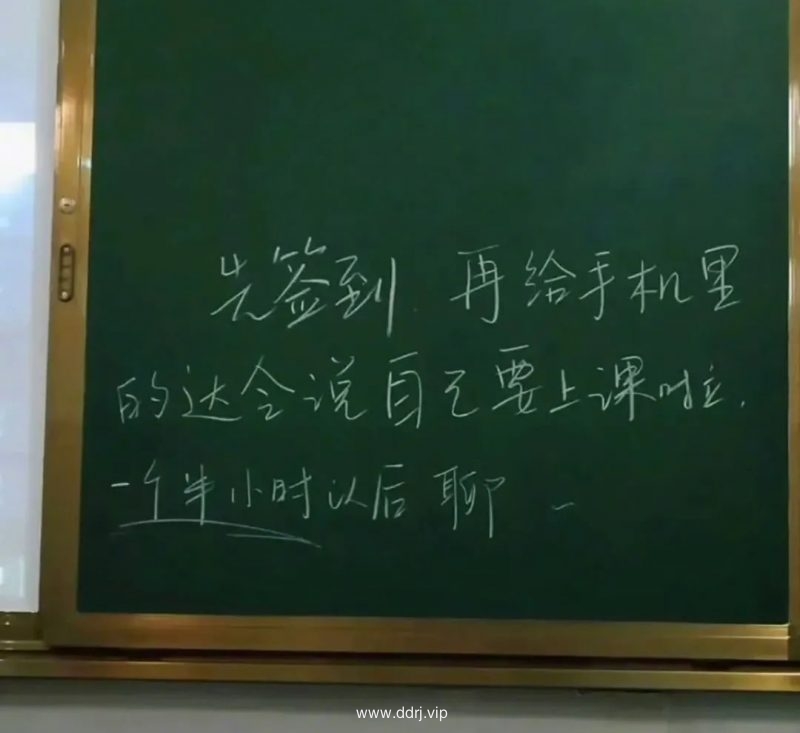 先签到.再给手机里
的达令说自己要上课啦.
一个半小时以后聊~
www.ddrj.vip